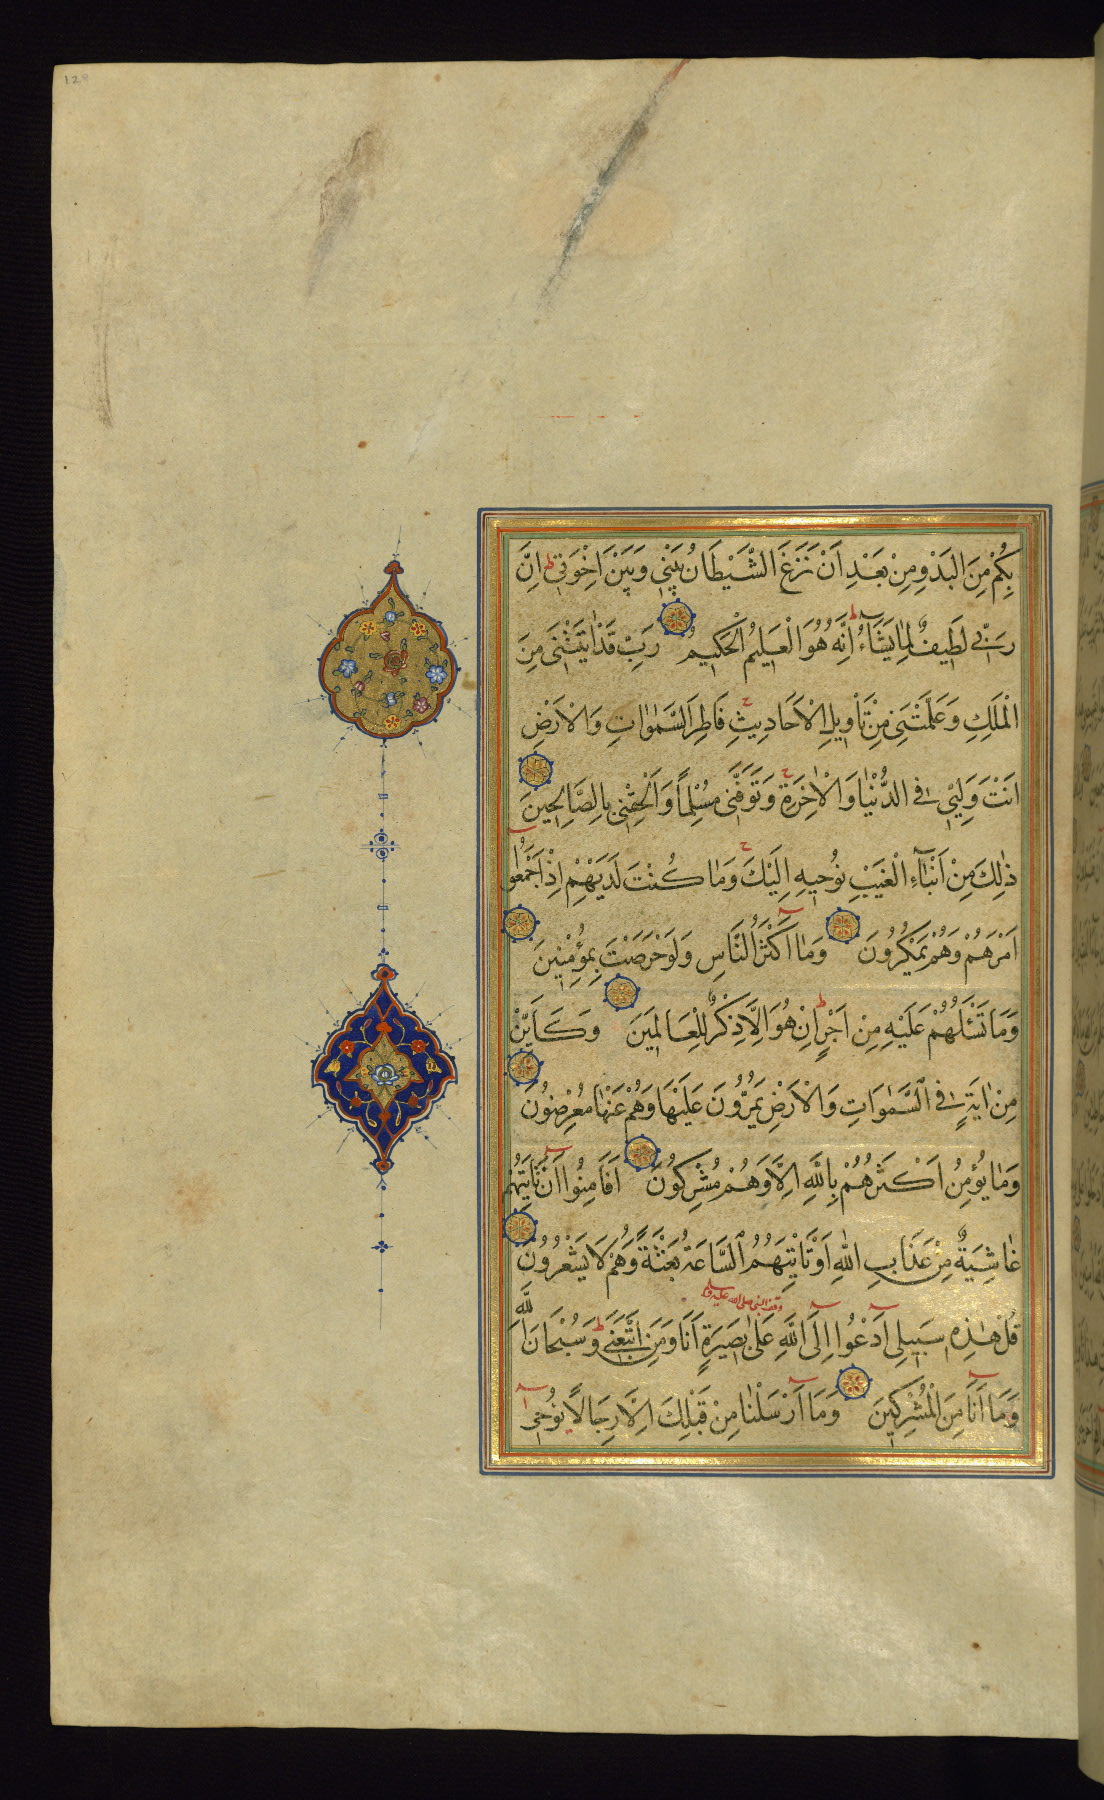 128
بِكُمْ مِنَ الْبَدْوِ مِنْ بَعْدِ اَنْ نَزَغَ الشَّيْطَانُ بَيْنِي وَبَيْنَ اِخْوَتِي ط اِنَّ
رَبِّي لَطِيفٌ لِمَا يَشَاءُ ط اِنَّهُ هُوَ الْعَلِيمُ الْحَكِيمُ رَبِّ قَدْ اٰتَيْتَنِي مِنَ
الْمُلْكِ وَعَلَّمْتَنِي مِنْ تَأْوِيلِ الْاَحَادِيثِ ج فَاطِرَ السَّمٰوَاتِ وَالْاَرْضِ
اَنْتَ وَلِيِّي فِي الدُّنْيَا وَالْاٰخِرَةِ ج تَوَفَّنِي مُسْلِمًا وَاَلْحِقْنِي بِالصَّالِحِينَ
ذٰلِكَ مِنْ اَنْبَاءِ الْغَيْبِ نُوحِيهِ اِلَيْكَ ج وَمَا كُنْتَ لَدَيْهِمْ اِذْ اَجْمَعُوا
اَمْرَهُمْ وَهُمْ يَمْكُرُونَ وَمَا اَكْثَرُ النَّاسِ وَلَوْ حَرَصْتَ بِمُؤْمِنِينَ
وَمَا تَسْئَلُهُمْ عَلَيْهِ مِنْ اَجْرٍ ط اِنْ هُوَ اِلَّا ذِكْرٌ لِلْعَالَمِينَ وَكَاَيِّنْ
مِنْ اٰيَةٍ فِي السَّمٰوَاتِ وَالْاَرْضِ يَمُرُّونَ عَلَيْهَا وَهُمْ عَنْهَا مُعْرِضُونَ
وَمَا يُؤْمِنُ اَكْثَرُهُمْ بِاللّٰهِ اِلَّا وَهُمْ مُشْرِكُونَ اَفَاَمِنُوا اَنْ تَأْتِيَهُمْ
غَاشِيَةٌ مِنْ عَذَابِ اللّٰهِ اَوْ تَأْتِيَهُمُ السَّاعَةُ بَغْتَةً وَهُمْ لَا يَشْعُرُونَ
وقف النبي صلى الله عليه وسلم
قُلْ هٰذِهِ سَبِيلِي اَدْعُوا اِلَى اللّٰهِ عَلٰى بَصِيرَةٍ اَنَا وَمَنِ اتَّبَعَنِي ط وَسُبْحَانَ اللّٰهِ
وَمَا اَنَا مِنَ الْمُشْرِكِينَ وَمَا اَرْسَلْنَا مِنْ قَبْلِكَ اِلَّا رِجَالًا نُوحِي